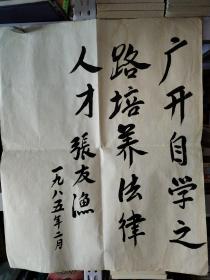 广开自学之
路培养法律
人才 張友漁
一九八五年二月